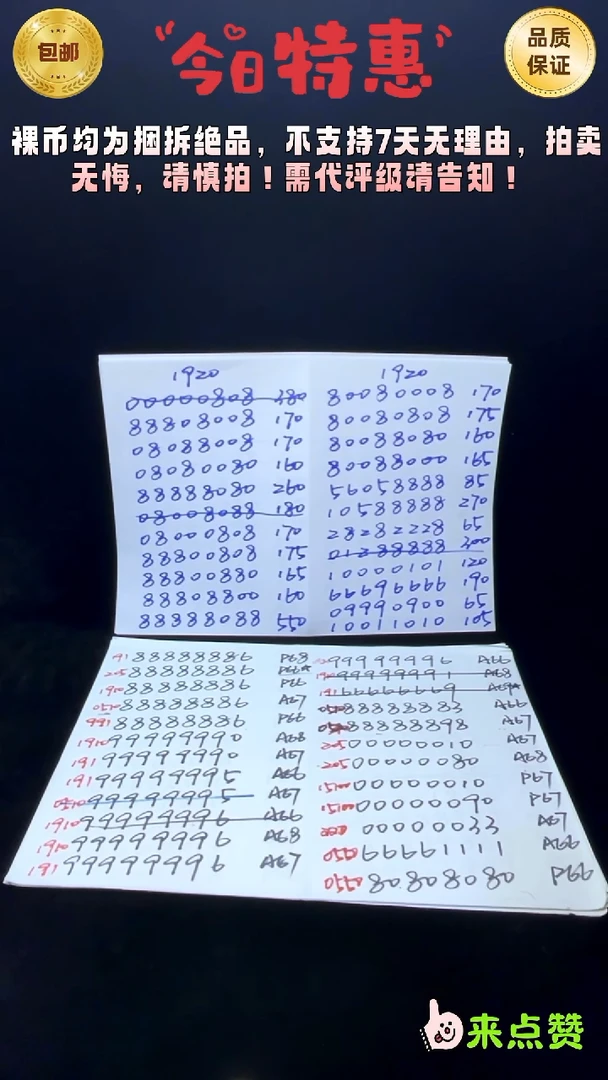 包邮
"今日特惠"
品质
保证
裸币均为捆拆绝品，不支持7天无理由，拍卖
无悔，请慎拍！需代评级请告知！
1920
00000808 380
88808008 170
08088008 170
08080080 160
88888080 260
08008088 180
08000808 170
88800808 175
88800880 165
88808800 160
88888088 550
1920
80080008 170
80080808 175
80088080 160
80088000 165
56058888 85
10588888 270
28282228 65
01388888 300
10000101 120
66696666 190
09990900 65
10011010 105
191 88888886 P68
205 88888886
1910 88888886 P66
0510 88888886 A67
991 88888886 P66
1910 99999990 A68
191 99999990 A67
191 99999995 A66
0510 99999995 A67
1910 99999996 A66
1910 99999996 A68
191 99999996 A67
99999996 A66
99999991 A68
191 66666669
88888883 A66
88888898 A67
205 00000010 A67
205 00000080 A68
1510 00000010 P67
1510 00000090 P67
00000033 A67
0550 66661111 A66
0550 80808080 P66
来点赞